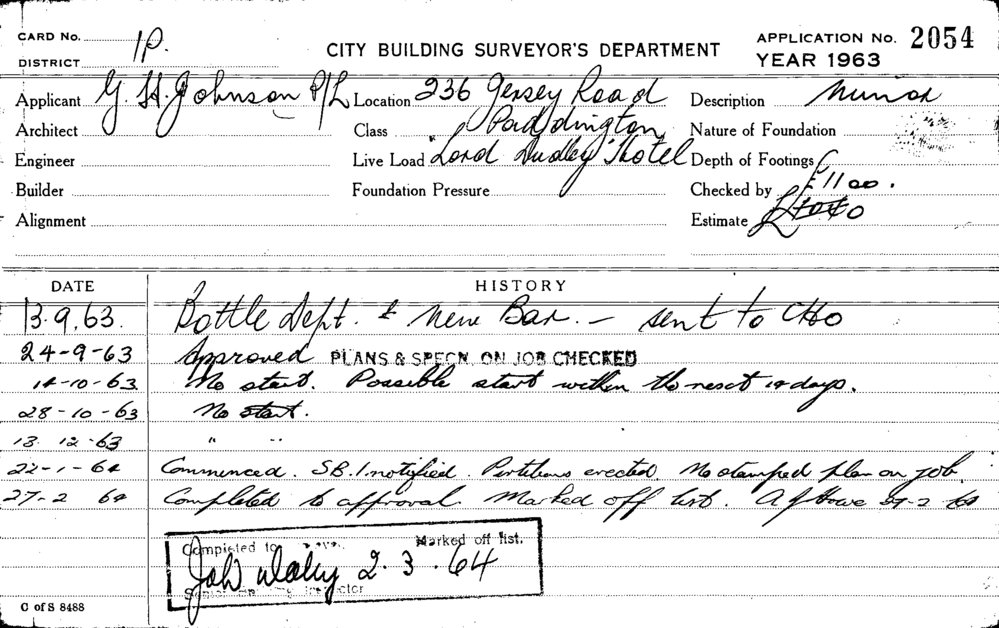 CARD No. 1P.
DISTRICT
CITY BUILDING SURVEYOR'S DEPARTMENT
APPLICATION No. 2054
YEAR 1963
Applicant G. H. Johnson P/L Location 236 Jersey Road Description Minor
Architect Class Paddington Nature of Foundation
Engineer Live Load "Lord Dudley" Hotel Depth of Footings
Builder Foundation Pressure Checked by £1100.
Alignment Estimate
DATE HISTORY
13.9.63. Bottle Dept. & New Bar. - sent to CHO
24-9-63 Approved PLANS & SPECN. ON JOB CHECKED
14-10-63 No start. Possible start within the next 14 days.
28-10-63 No start.
13 12-63 " "
22-1-64 Commenced. S.B.I. notified. Partitions erected No stamped plan on job.
27-2 64 Completed to approval. Marked off list. A J Howe 27-2 64
Completed to Marked off list.
2.3.64
C of S 8488